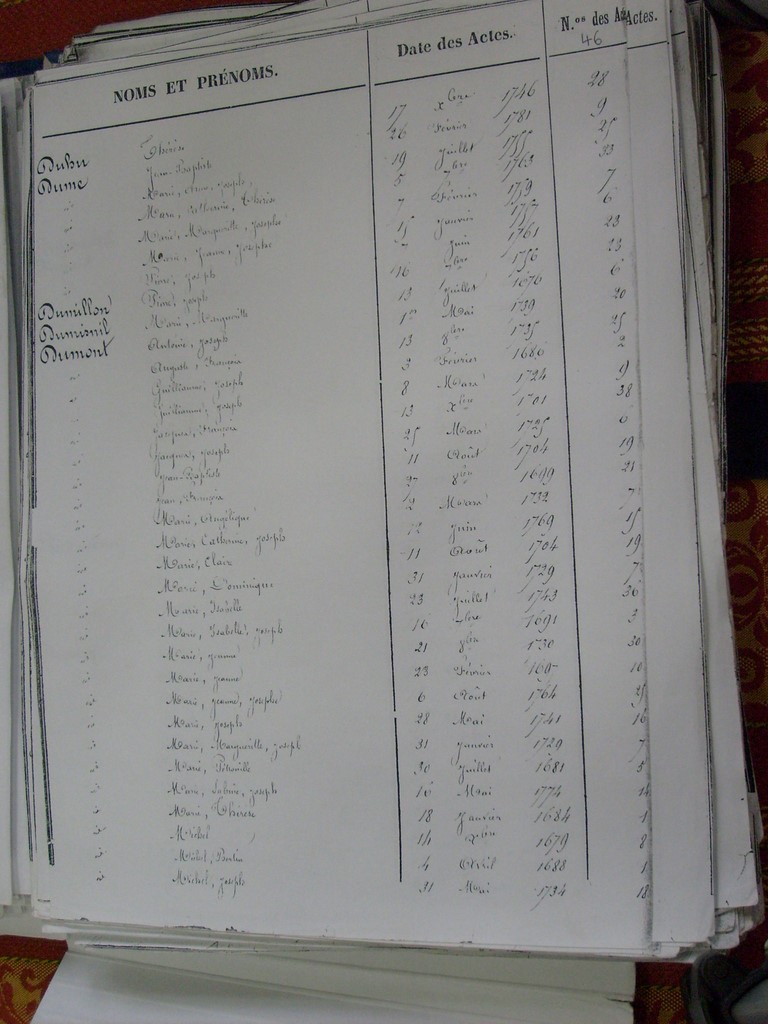 NOMS ET PRÉNOMS. Date des Actes. N.os des Actes.
46
Duhu Thérèse 17 Xbre 1746 28
Dume Jean-Baptiste 26 Février 1781 9
" Marie, Anne, Joseph 19 Juillet 1755 25
" Marie, Catherine, Thérèse 5 7bre 1763 33
" Marie, Marguerite, Josephe 7 Février 1759 7
" Marie, Jeanne, Josephe 15 Janvier 1757 6
" Pierre, Joseph 7 Juin 1761 23
Dumillon Pierre, Joseph 16 7bre 1756 23
Dumisnil Marie, Marguerite 13 Juillet 1676 6
Dumont Antoine, Joseph 1er Mai 1739 20
" Auguste, François 13 8bre 1735 25
" Guillaume, Joseph 3 Février 1686 2
" Guillaume, Joseph 8 Mars 1724 9
" Jacques, François 13 Xbre 1701 38
" Jacques, Joseph 25 Mars 1725 6
" Jean-Baptiste 11 Août 1704 19
" Jean, François 27 8bre 1699 21
" Marie, Angélique 2 Mars 1732 7
" Marie Catherine, Joseph 12 Juin 1769 15
" Marie, Claire 11 Août 1704 19
" Marie, Dominique 31 Janvier 1729 7
" Marie, Isabelle 23 Juillet 1743 36
" Marie, Isabelle, Joseph 16 7bre 1691 3
" Marie, Jeanne 21 9bre 1730 30
" Marie, Jeanne 23 Février 16
" Marie, Jeanne, Josephe 6 Août 1764 25
" Marie, Joseph 28 Mai 1741 16
" Marie, Marguerite, Joseph 31 Janvier 1729 7
" Marie, Pétronille 30 Juillet 1681 5
" Marie, Sabine, Joseph 16 Mai 1774 14
" Marie, Thérèse 18 Janvier 1684 1
" Michel 14 Xbre 1679 8
" Michel, Bertin 4 Avril 1688 1
" Michel, Joseph 31 Mai 1734 18